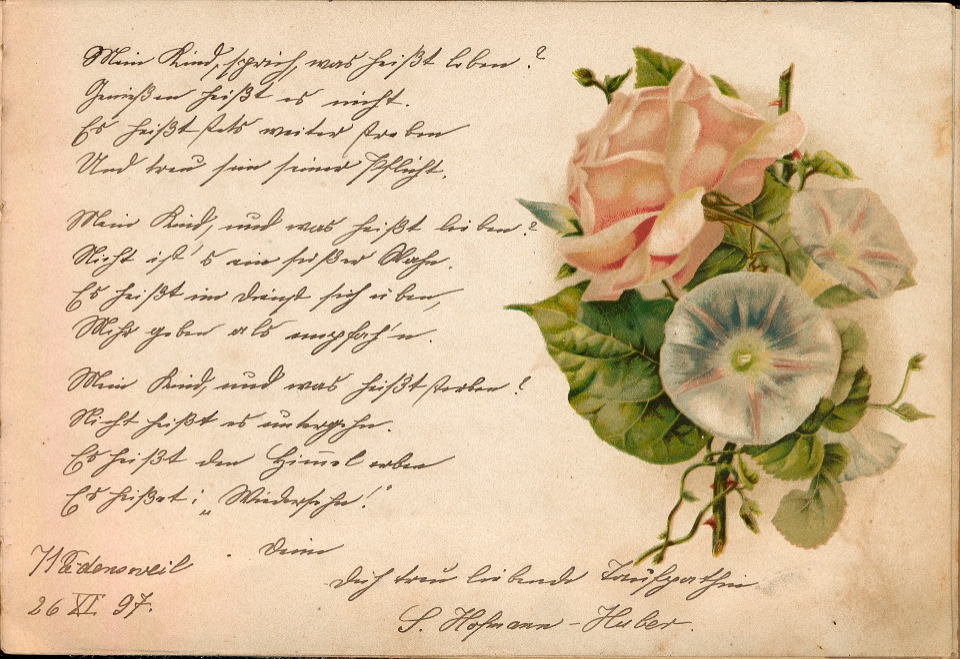 Mein Kind, sprich, was heißt leben?
Genießen heißt es nicht.
Es heißt stets weiter streben
Und treu sein seiner Pflicht.
Mein Kind, und was heißt lieben?
Nicht ist's ein süßer Wahn.
Es heißt im Dienst sich üben,
Mehr geben als empfah'n.
Mein Kind, und was heißt sterben?
Nicht heißt es untergehn.
Es heißt den Himmel erben
Es heißet: „Wiedersehn!"
Deine
Dich treu liebende Taufpathin
S. Hofmann-Huber.
Wädensweil
26 XI. 97.